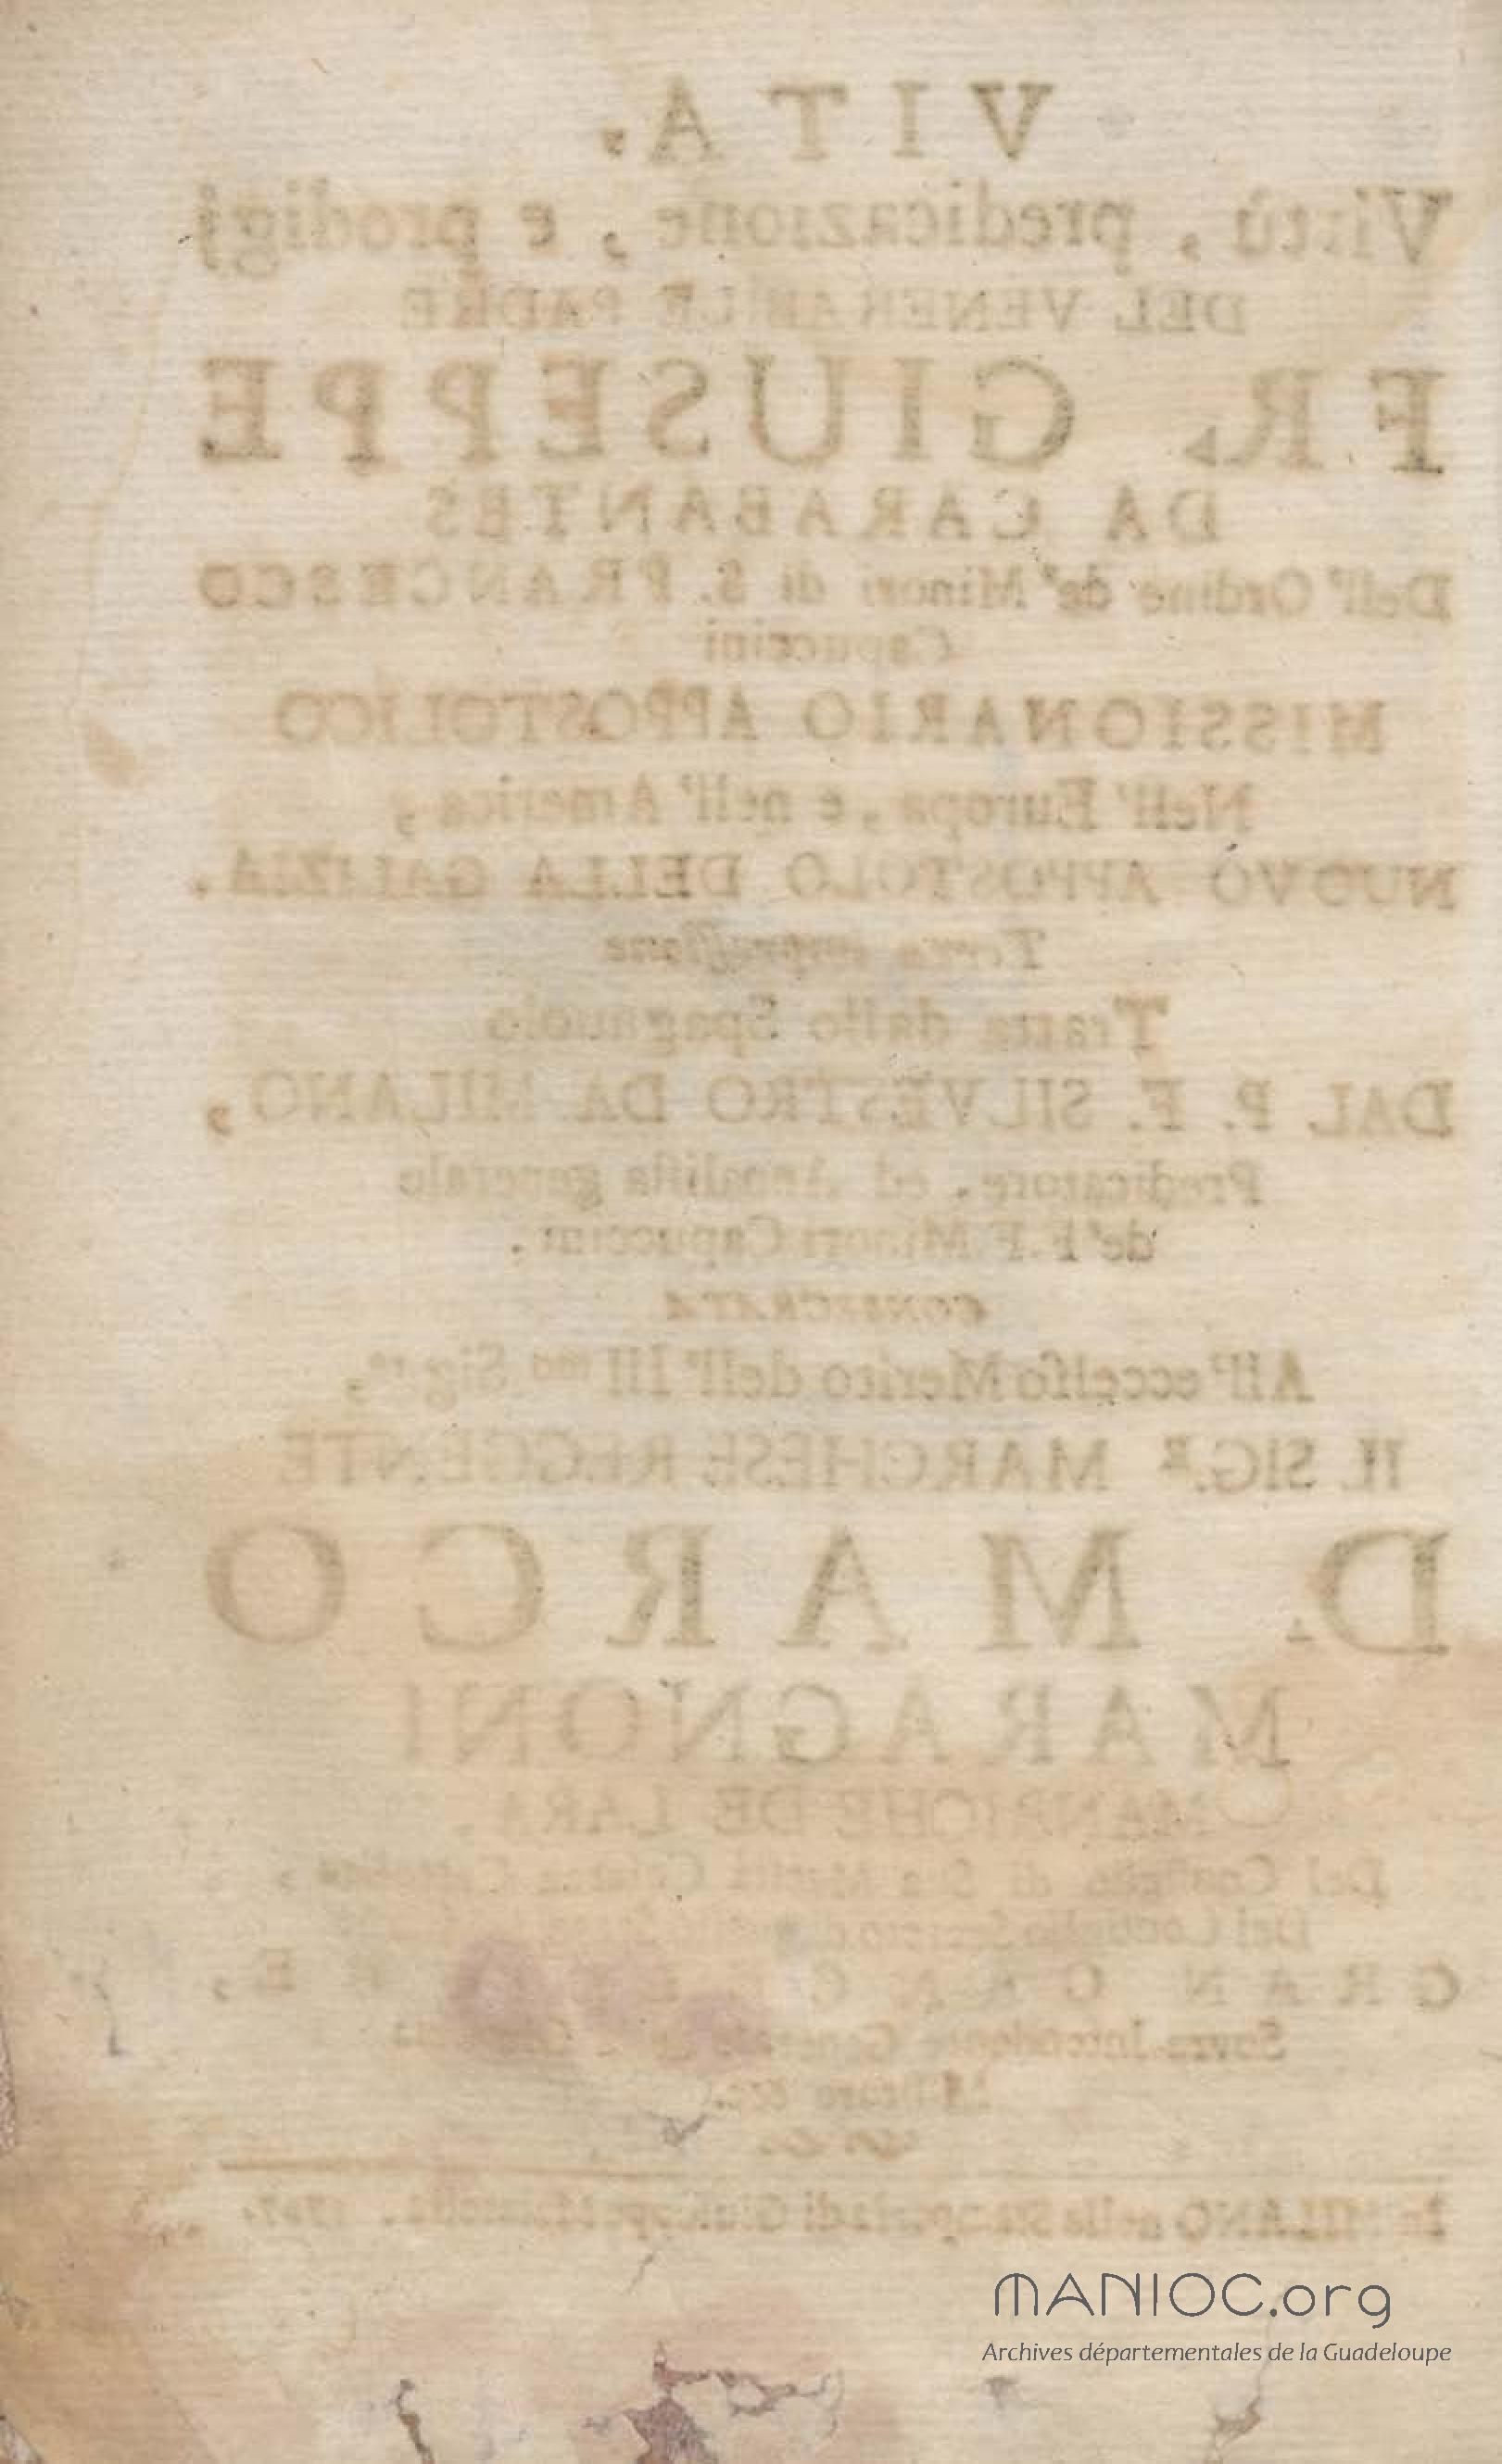 VITA,
Virtù, predicazione, e prodigj
DEL VENERABILE PADRE
FR. GIUSEPPE
DA CARABANTES
Dell' Ordine de' Minori di S. FRANCESCO
Capuccini
MISSIONARIO APPOSTOLICO
Nell' Europa, e nell' America,
NUOVO APPOSTOLO DELLA GALIZIA.
impressione
Tratta dallo Spagnuolo
DAL P. F. SILVESTRO DA MILANO,
Predicatore, ed Annalista generale
de' F.F. Minori Capuccini.
CONSECRATA
All' eccelso Merito dell' Ill.mo Sig.re,
IL SIG.R MARCHESE REGGENTE
D. MARCO
MARAGNONI
MANRICHE DE LARA,
Del Consiglio di Sua Maestà
Del Consiglio
GRAN
Sovra-Intendente
Militare &c.
In MILANO nella Stamparia di Giuseppe
MANIOC.org
Archives départementales de la Guadeloupe